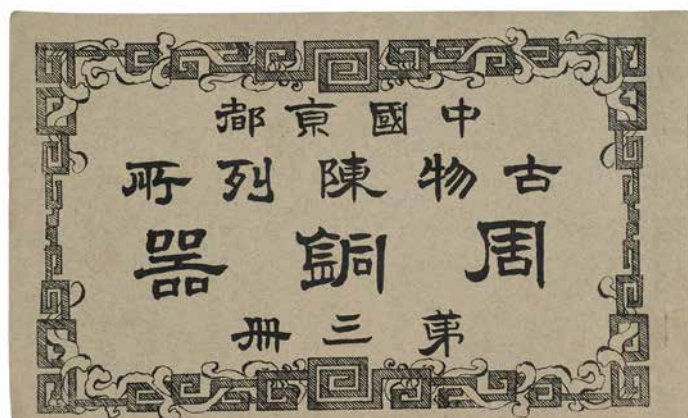 中國京都
古物陳列所
周銅器
第三冊